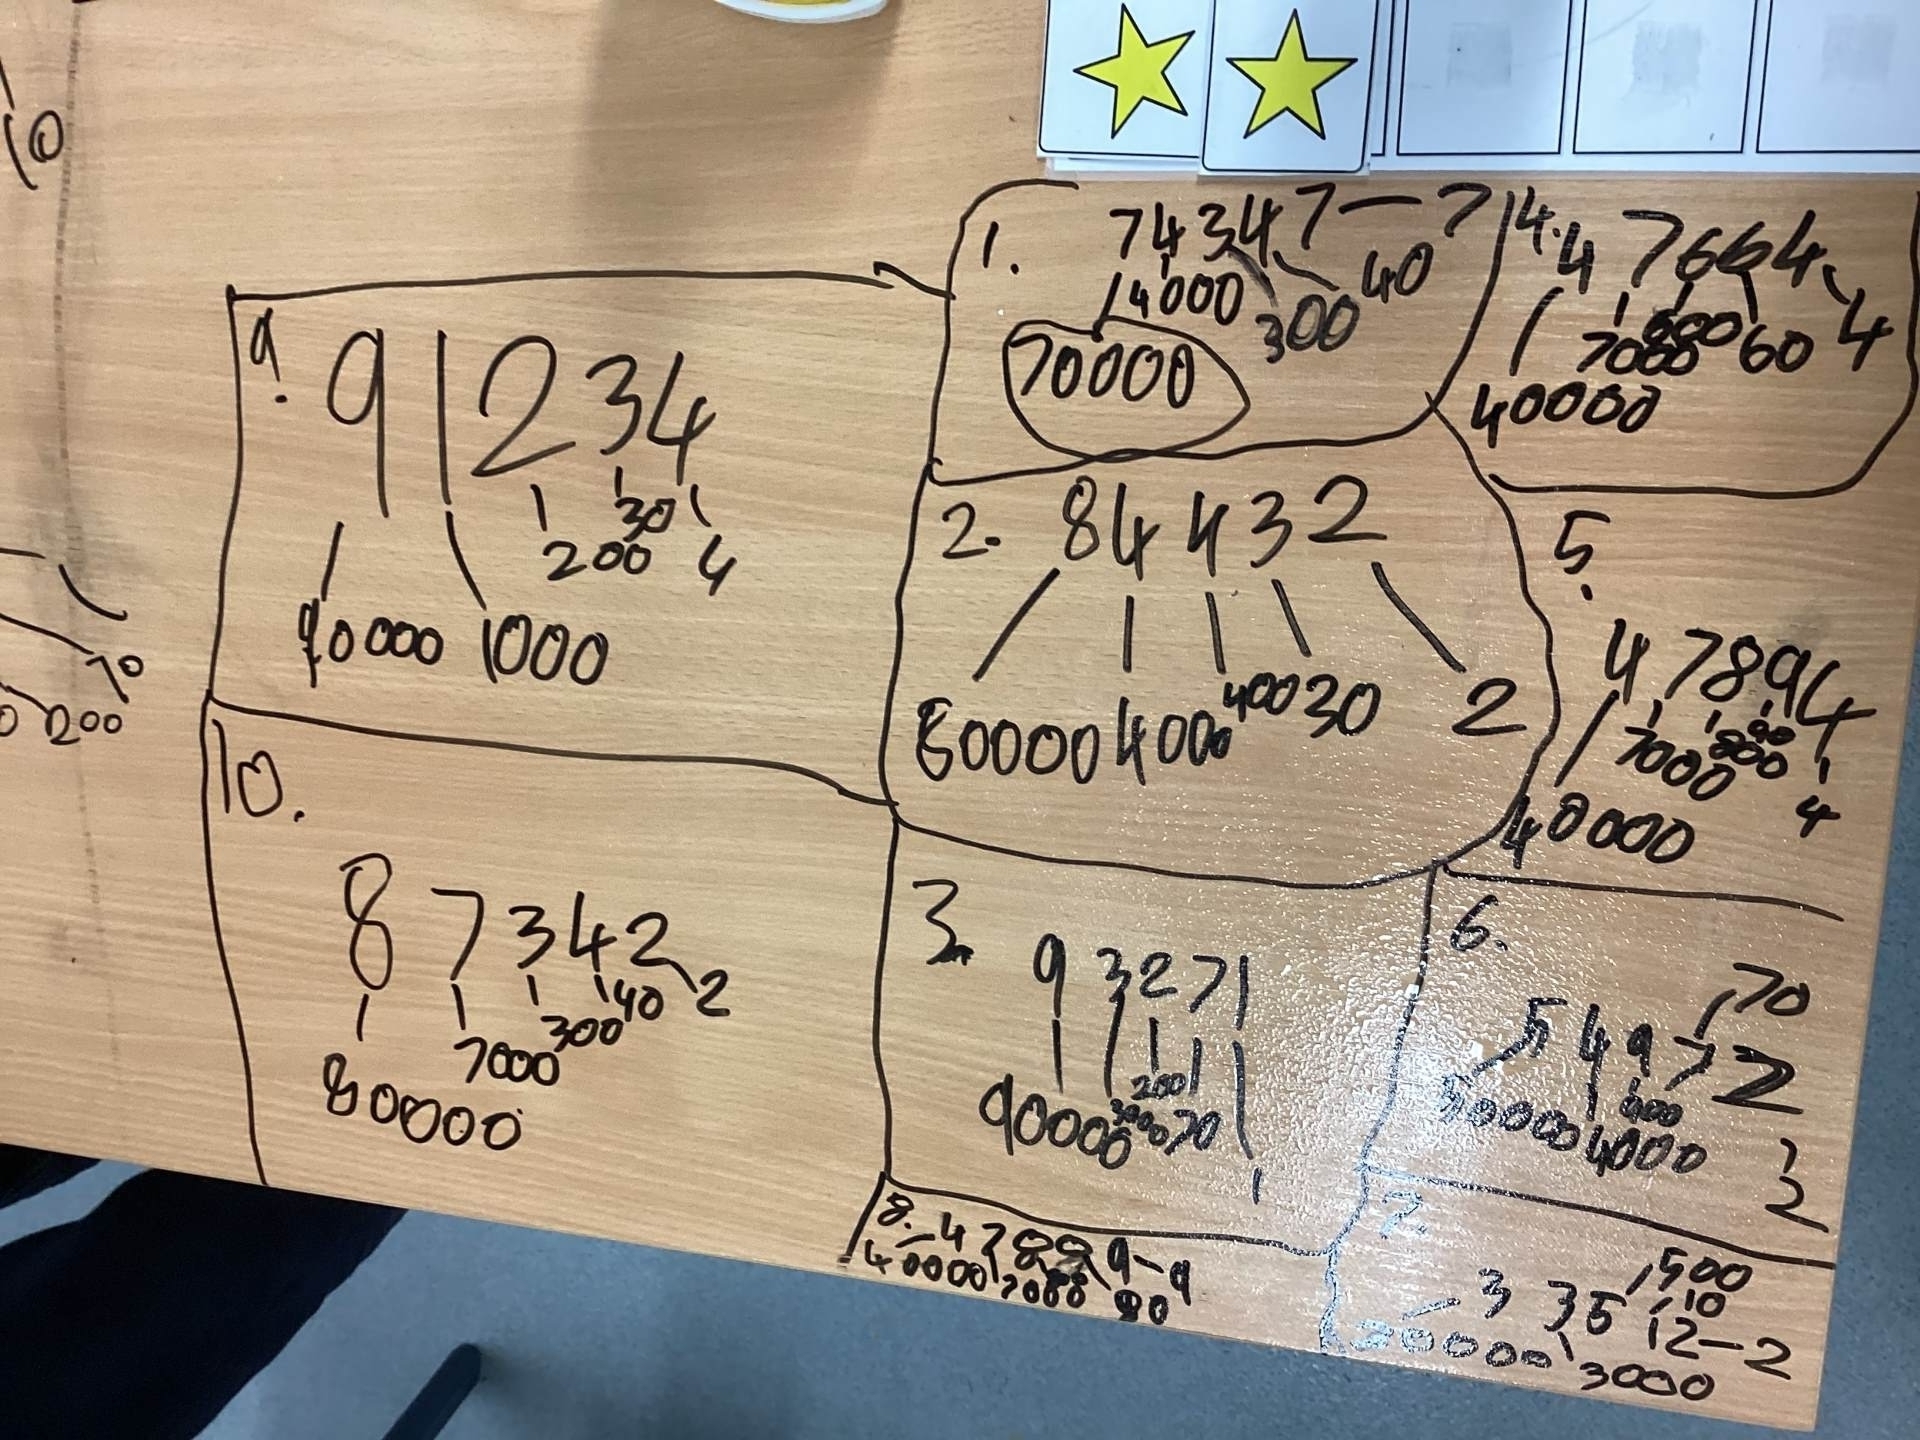 10
70
200
1. 74347—7
4000 300 40
70000
4. 47664
7000 600 60 4
40000
9. 91234
200 30 4
90000 1000
2. 84432
80000 4000 400 30 2
5. 47894
7000 800 90 4
40000
10. 87342
7000 300 40 2
80000
3. 93271
200
90000 3000 70 1
6. 70
54972
50000 4000 900
2
8. 47889-9
40000 7000 80
7. 500
10
33512-2
30000 3000